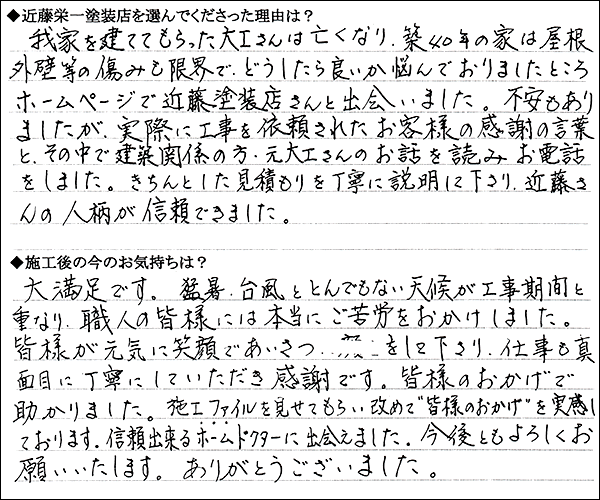 ◆近藤栄一塗装店を選んでくださった理由は？
我家を建ててもらった大工さんは亡くなり、築40年の家は屋根
外壁等の傷みも限界で、どうしたら良いか悩んでおりましたところ
ホームページで近藤塗装店さんと出会いました。不安もあり
ましたが、実際に工事を依頼されたお客様の感謝の言葉
と、その中で建築関係の方・元大工さんのお話を読みお電話
をしました。きちんとした見積もりを丁寧に説明して下さり、近藤さ
んの人柄が信頼できました。
◆施工後の今のお気持ちは？
大満足です。猛暑、台風ととんでもない天候が工事期間と
重なり、職人の皆様には本当にご苦労をおかけしました。
皆様が元気に笑顔であいさつ をして下さり、仕事も真
面目に丁寧にしていただき感謝です。皆様のおかげで
助かりました。施工ファイルを見せてもらい改めて"皆様のおかげ"を実感し
ております。信頼出来るホームドクターに出会えました。今後ともよろしくお
願いいたします。ありがとうございました。